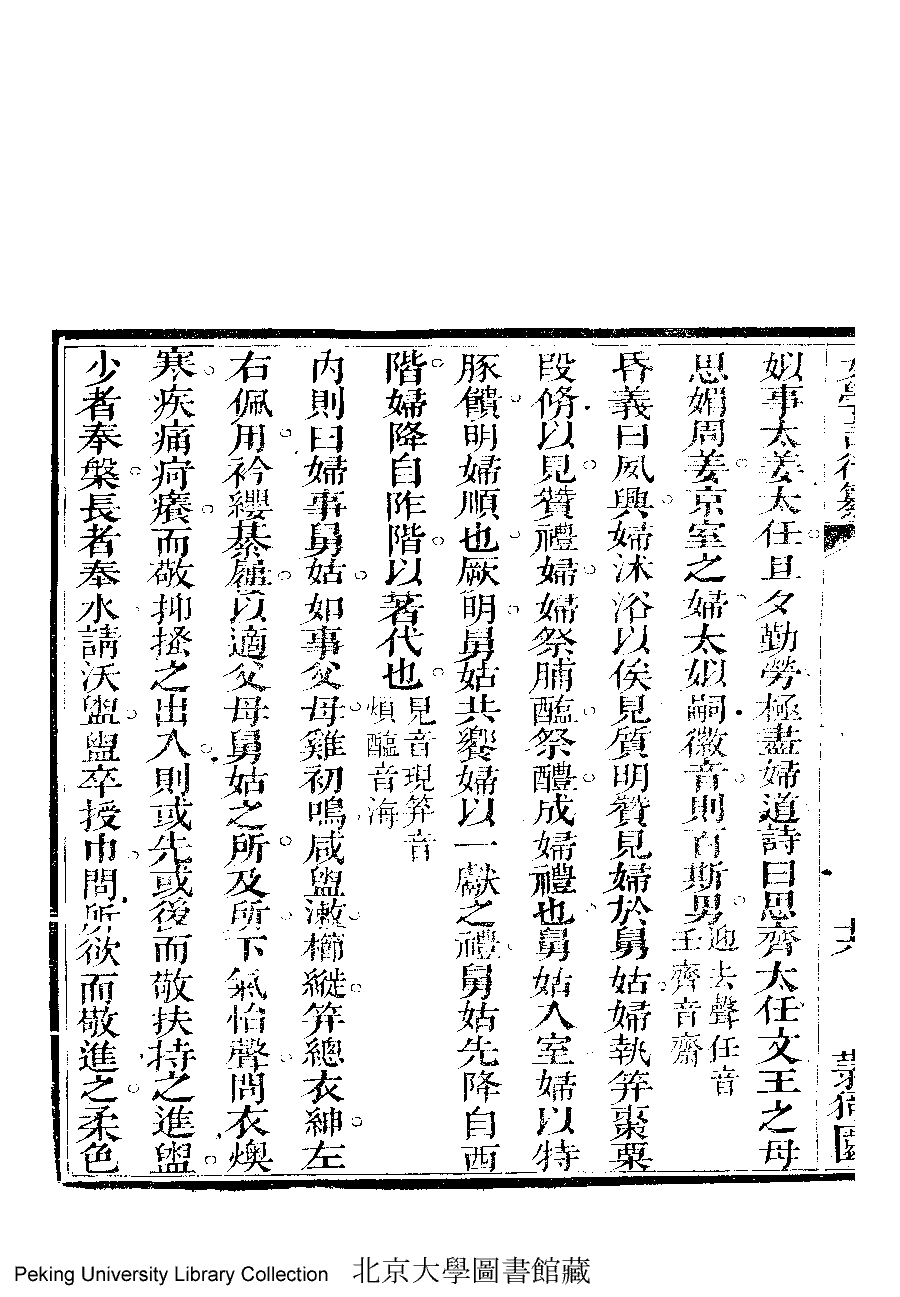 姒事太姜太任旦夕勤勞極盡婦道詩曰思齊太任文王之母
思媚周姜京室之婦太姒嗣徽音則百斯男迎去聲任音壬齊音齋
昏義曰夙興婦沐浴以俟見質明贊見婦於舅姑婦執笲棗栗
段脩以見贊禮婦婦祭脯醢祭醴成婦禮也舅姑入室婦以特
豚饋明婦順也厥明舅姑共饗婦以一獻之禮舅姑先降自西
階婦降自阼階以著代也見音現笲音煩醢音海
內則曰婦事舅姑如事父母雞初鳴咸盥漱櫛縰笄總衣紳左
右佩用衿纓綦屨以適父母舅姑之所及所下氣怡聲問衣燠
寒疾痛疴癢而敬抑搔之出入則或先或後而敬扶持之進盥
少者奉槃長者奉水請沃盥盥卒授巾問所欲而敬進之柔色
Peking University Library Collection 北京大學圖書館藏